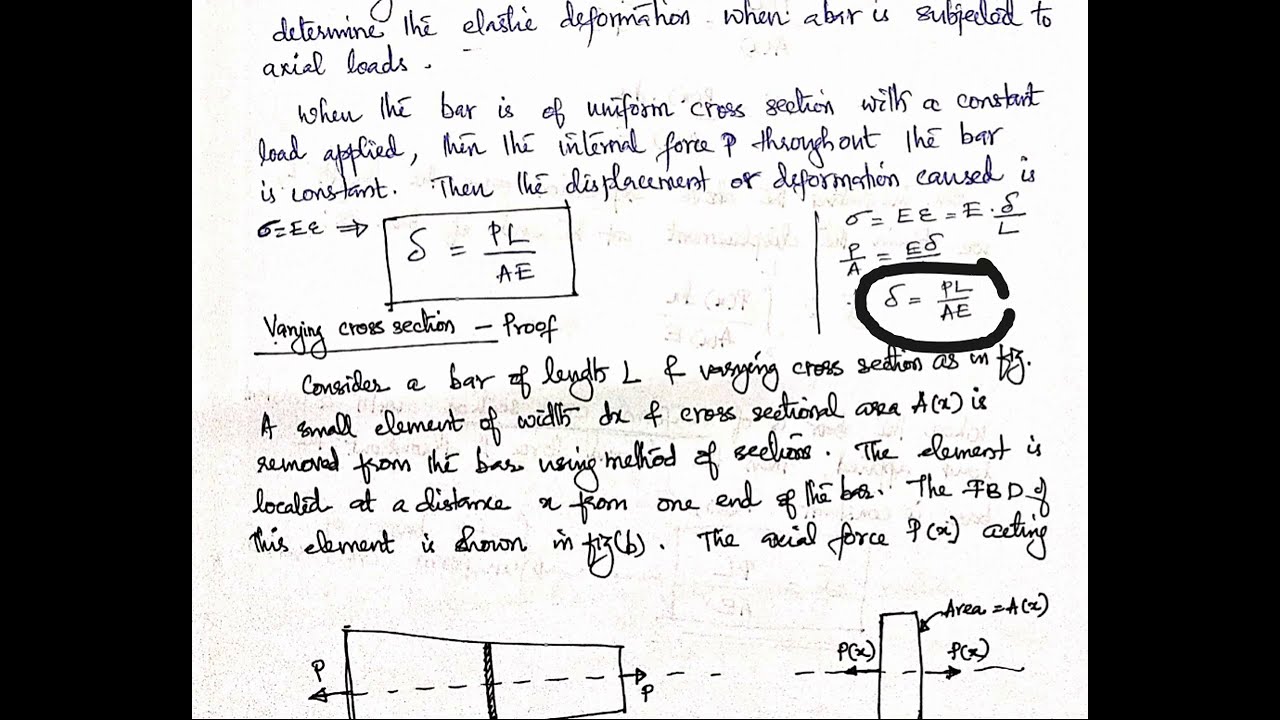 determine the elastic deformation when a bar is subjected to
axial loads.
When the bar is of uniform cross section with a constant
load applied, then the internal force P throughout the bar
is constant. Then the displacement or deformation caused is
σ=Eε ⇒ δ = PL/AE
σ = Eε = E · δ/L
P/A = Eδ
δ = PL/AE
Varying cross section – Proof
Consider a bar of length L & varying cross section as in fig.
A small element of width dx & cross sectional area A(x) is
removed from the bar using method of sections. The element is
located at a distance x from one end of the bar. The FBD of
this element is shown in fig(b). The axial force P(x) acting
Area = A(x)
P
P
P(x)
P(x)